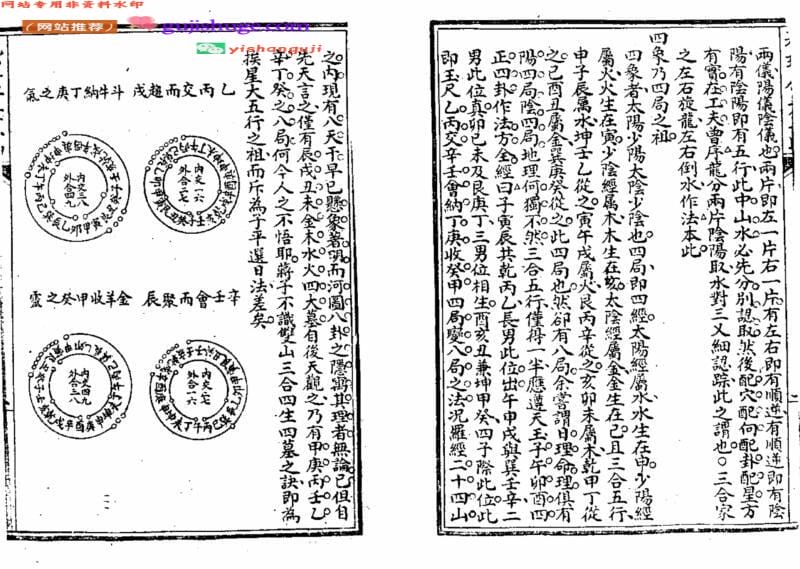 网站专用非资料水印
(网站推荐)
gujishuge.com
yishangguji
兩儀陽儀陰儀也兩片即左一片右一片有左右即有順逆有順逆即有陰
陽有陰陽即有五行此中山水必先分別認取然後配穴配向配卦配星方
有實在工夫曾序龍分兩片陰陽取水對三叉細認踪此之謂也三合家
之左右旋龍左右倒水作法本此
四象乃四局之祖
四象者太陽少陽太陰少陰也四局即四經太陽經屬水水生在申少陽經
屬火火生在寅少陰經屬木木生在亥太陰經屬金金生在己且三合五行
申子辰屬水坤壬乙從之寅午戌屬火艮丙辛從之亥卯未屬木乾甲丁從
之己酉丑屬金巽庚癸從之此四局也然卻有八局余嘗謂日理命理俱有
陽四局陰四局地理何獨不然三合五行僅得一半應遵天玉子午卯酉四
正四卦作法方全經曰子寅辰共乾丙乙長男此位出午申戌與巽壬辛二
男此位真卯巳未及艮庚丁三男位相生酉亥丑兼坤甲癸四子際此位此
即玉尺乙丙交辛壬會納丁庚收癸甲四局變八局之法況羅經二十四山
之內現有八天干早已懸象著明而河圖八卦之隱寓其理者無論已但自
先天言之僅有辰戌丑未金木水火四大墓自後天觀之乃有甲庚丙壬乙
辛丁癸之八局何今人之不悟耶蔣子不識雙山三合四生四墓之訣即為
挨星大五行之祖而斥為子平選日法差矣
乙丙交而趨戌
斗牛納丁庚之氣
內交一六
外合二七
內交三八
外合四九
辛壬會而聚辰
金羊收甲癸之靈
內交二七
外合一六
內交四九
外合三八
二